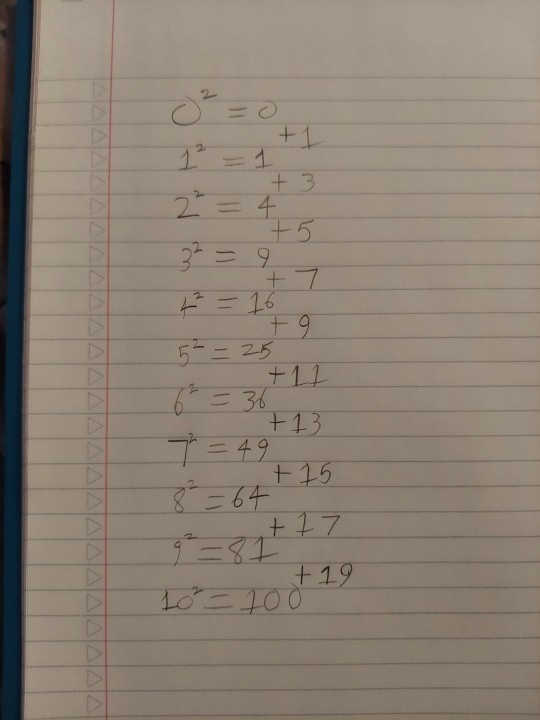 0² = 0
+1
1² = 1
+ 3
2² = 4
+ 5
3² = 9
+ 7
4² = 16
+ 9
5² = 25
+ 11
6² = 36
+ 13
7² = 49
+ 15
8² = 64
+ 17
9² = 81
+ 19
10² = 100